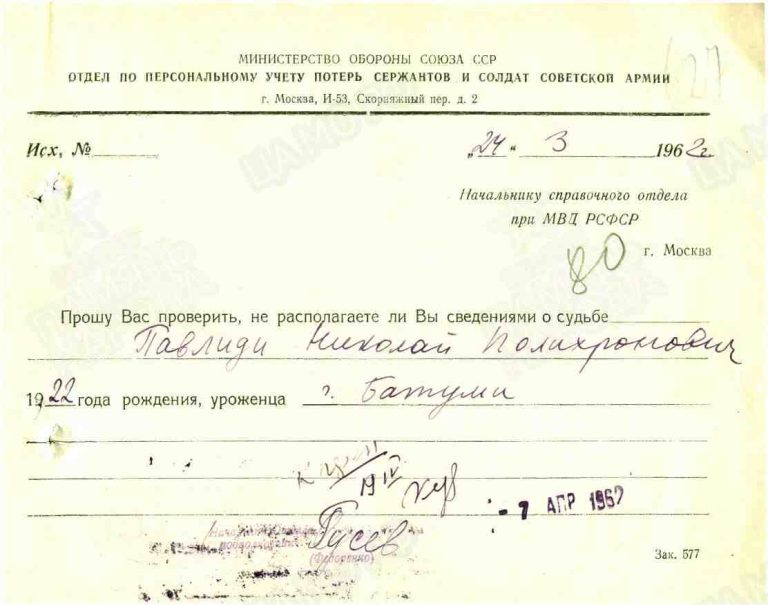 127
МИНИСТЕРСТВО ОБОРОНЫ СОЮЗА ССР
ОТДЕЛ ПО ПЕРСОНАЛЬНОМУ УЧЕТУ ПОТЕРЬ СЕРЖАНТОВ И СОЛДАТ СОВЕТСКОЙ АРМИИ
г. Москва, И-53, Скорняжный пер. д. 2
Исх, № „24“ 3 1962г
Начальнику справочного отдела
при МВД РСФСР
80 г. Москва
Прошу Вас проверить, не располагаете ли Вы сведениями о судьбе
Павлиди Николай Полихронович
1922 года рождения, уроженца г. Батуми
19 IV
- 7 АПР 1962
Гусев
(Федоренко)
Зак. 577